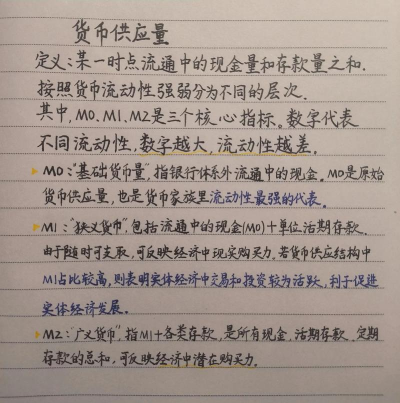 货币供应量
定义:某一时点流通中的现金量和存款量之和.
按照货币流动性强弱分为不同的层次.
其中, M0. M1. M2是三个核心指标. 数字代表
不同流动性, 数字越大, 流动性越差.
M0:“基础货币量”, 指银行体系外流通中的现金. M0是原始
货币供应量, 也是货币家族里流动性最强的代表.
M1:“狭义货币”, 包括流通中的现金(M0)+单位活期存款.
由于随时可支取, 可反映经济中现实购买力. 若货币供应结构中
M1占比较高, 则表明实体经济中交易和投资较为活跃, 利于促进
实体经济发展.
M2:“广义货币”, 指M1+各类存款, 是所有现金、活期存款、定期
存款的总和, 可反映经济中潜在购买力.